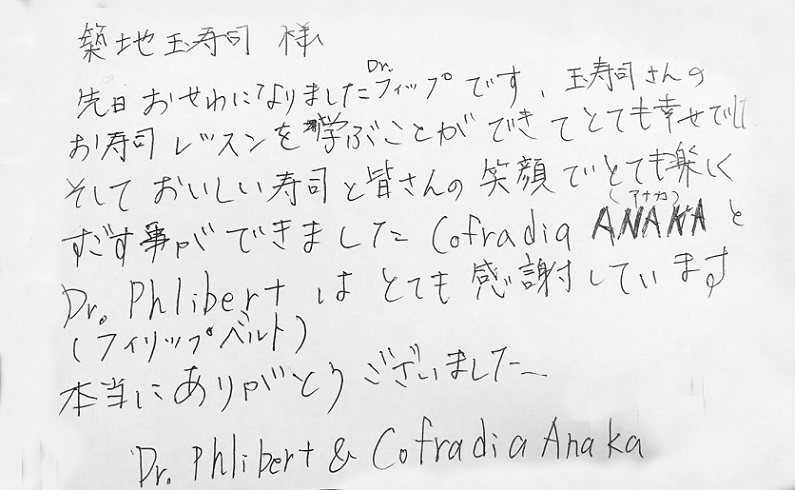 築地玉寿司 様
先日 おせわになりました Dr. フィップです、玉寿司さんの
お寿司 レッスンを 学ぶことができてとても幸せでし
そして おいしい寿司と皆さんの笑顔でとても楽しく
すごす事ができました Cofradia ANAKA (アナカ) と
Dr. Phlibert は とても 感謝しています
(フィリップベルト)
本当にありがとう ございました
Dr. Phlibert & Cofradia Anaka